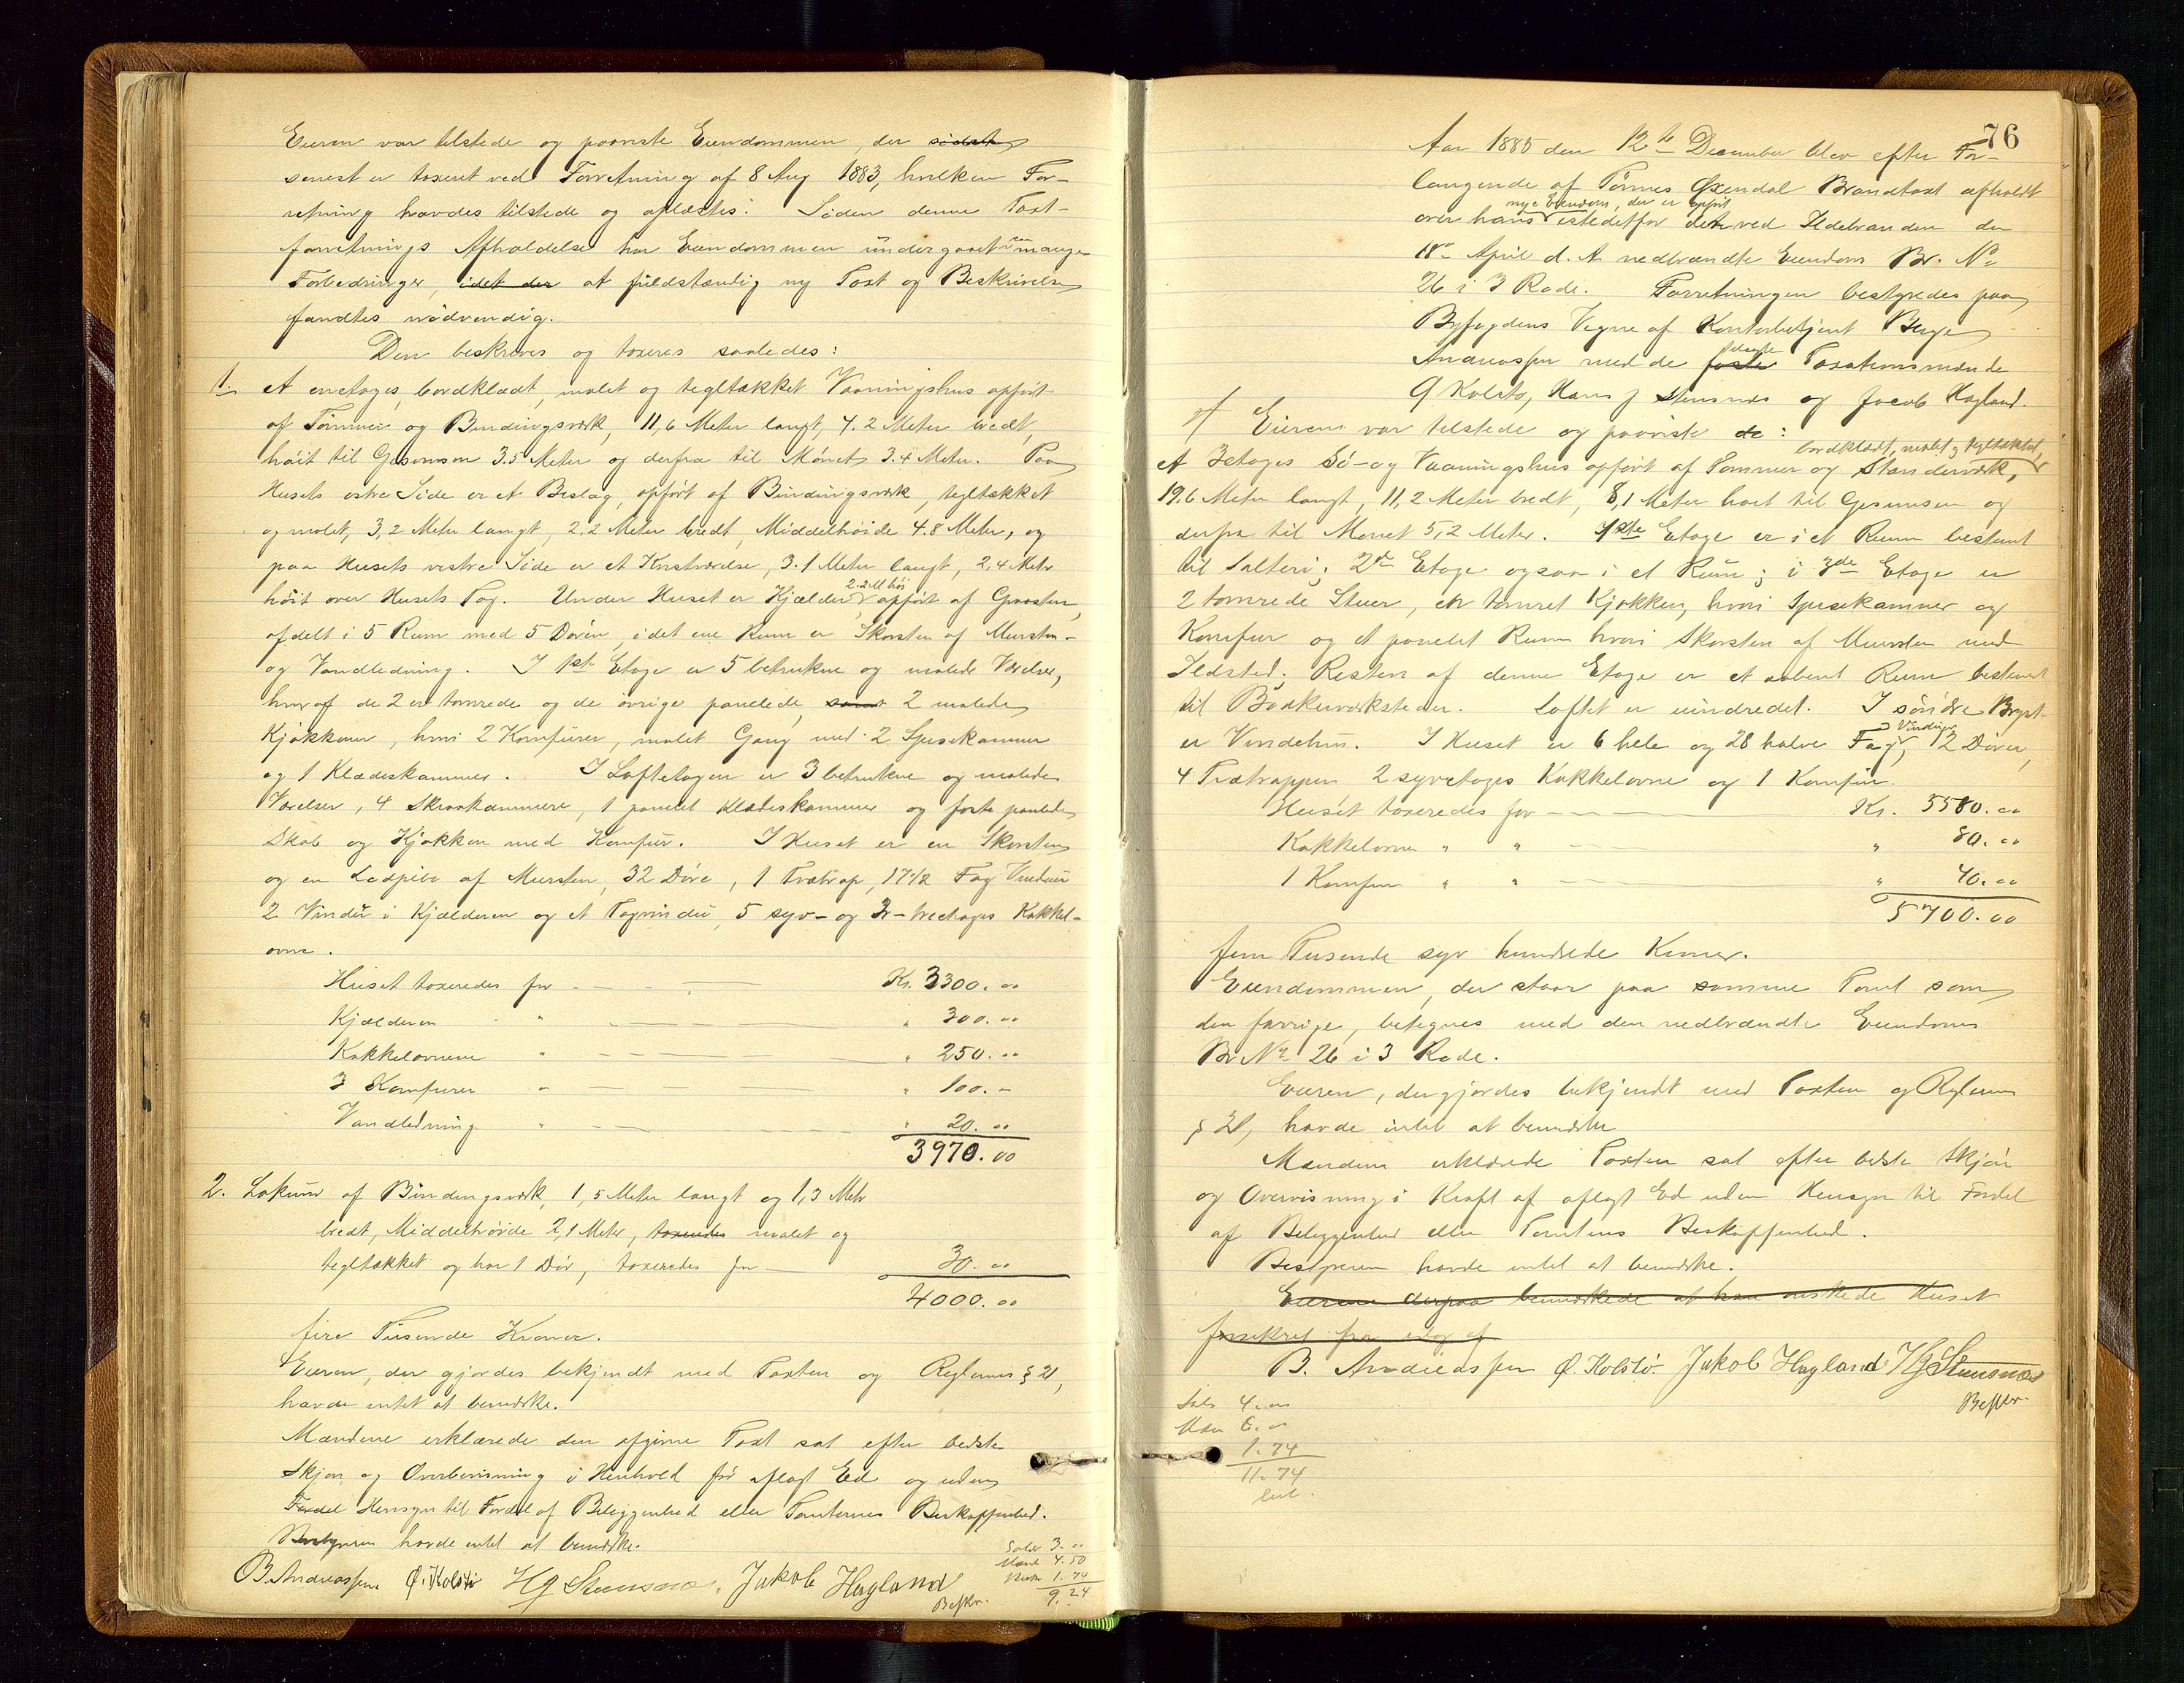 Eieren var tilstede og paaviste Eiendommen, der sidst
senest er taxeret ved Forretning af 8 Aug 1883, hvilken For-
retning havdes tilstede og oplæstes. Siden denne Taxt-
forretnings Afholdelse har Eiendommen undergaaet saa mange
Forbedringer, idet der at fuldstændig ny Taxt og Beskrivelse
fandtes nødvendig.
Den beskrives og taxeres saaledes:
1. et enetages, bordklædt, malet og tegltækket Vaaningshus opført
af Tømmer og Bindingsværk, 11,6 Meter langt, 7.2 Meter bredt,
høit til Gesimsen 3.5 Meter og derfra til Mønet 3.4 Meter. Paa
Husets østre Side er et Beslag, opført af Bindingsværk, tegltækket
og malet, 3,2 Meter langt, 2.2 Meter bredt, Middelhøide 4.8 Meter, og
paa Husets vestre Side er et Kvistværelse, 3.1 Meter langt, 2,4 Meter
2.2 M høi
høit over Husets Tag. Under Huset er Kjælder opført af Graasten,
afdelt i 5 Rum med 5 Døre, i det ene Rum er Skorsten af Mursten
og Vandledning. I 1ste Etage er 5 betrukne og malede Værelser,
hvoraf de 2 er tømrede og de øvrige panelede, samt 2 malede
Kjøkkener, hvori 2 Komfurer, malet Gang med 2 Spisekammer
og 1 Klædeskammer. I Loftetagen er 3 betrukne og malede
Værelser, 4 Skraakammere, 1 panelet Klædeskammer og faste panelede
Skab og Kjøkken med Komfur. I Huset er en Skorsten
og en Ledpibe af Mursten, 32 Døre, 1 Trætrap, 17 1/2 Fag Vinduer
2 Vindu i Kjælderen og et Tagvindu, 5 syv- og 3- tretages Kakkel-
ovne.
Huset taxeredes for Kr. 3300.00
Kjælderen " " 300.00
Kakkelovnene " " 250.00
3 Komfurer " " 100.-
Vandledning " " 20.00
3970.00
2. Lokum af Bindingsværk, 1,5 Meter langt og 1,3 Meter
bredt, Middelhøide 2,1 Meter, taxeredes malet og
tegltækket og har 1 Dør, taxeredes for 30.00
4000.00
fire Tusende Kroner.
Eieren, der gjordes bekjendt med Taxten og Reglernes § 21,
havde intet at bemærke.
Mændene erklærede den afgivne Taxt sat efter bedste
Skjøn og Overbevisning i Henhold til aflagt Ed og uden
Fordel Hensyn til Fordel af Beliggenhed eller Tomternes Beskaffenhed.
Bestyreren havde intet at bemærke.
B. Andreassen Ø. Kolstø HJ Stensnæs. Jakob Hagland
Beskr.
Salær 3.00
Mænd 4.50
1.74
9.24
76
Aar 1885 den 12te December blev efter For-
langende af Tønnes Øxendal Brandtaxt afholdt
nye Eiendom, der er opført
over hans istedetfor den ved Ildebranden den
18de April d. A nedbrændte Eiendom Br. No
26 i 3 Rode. Forretningen bestyredes paa
Byfogdens Vegne af Kontorbetjent Børge
Andreassen med de faste Taxationsmænde
Ø Kolstø, Hans J Stensnæs og Jacob Hagland.
Eieren var tilstede og paaviste de:
bordklædt, malet og tegltækket,
et 3etages Sø- og Vaaningshus opført af Tømmer og Stænderværk,
19.6 Meter langt, 11,2 Meter bredt, 8,1 Meter høit til Gesimsen og
derfra til Mønet 5,2 Meter. 1ste Etage er i et Rum bestemt
til Salteri; 2den Etage ogsaa i et Rum; i 3de Etage er
2 tømrede Stuer, et tømret Kjøkken, hvori Spisekammer og
Komfur og et panelet Rum hvori Skorsten af Mursten med
Ildsted; Resten af denne Etage er et aabent Rum bestemt
til Bødkerværksteder. Loftet er uindredet. I søndre Bryst
Vinduer
er Vindehus. I Huset er 6 hele og 28 halve Fag, 12 Døre,
4 Trætrapper, 2 syvetages Kakkelovne og 1 Komfur.
Huset taxeredes for Kr. 5580.00
Kakkelovne " " " 80.00
1 Komfur " " " 40.00
5700.00
fem Tusende syv hundrede Kroner.
Eiendommen, der staar paa samme Tomt som
den forrige, betegnes med den nedbrændte Eiendoms
Br No 26 i 3 Rode.
Eieren, der gjordes bekjendt med Taxten og Reglernes
§ 21, havde intet at bemærke
Mændene erklærede Taxten sat efter bedste Skjøn
og Overvisning i Kraft af aflagt Ed uden Hensyn til Fordel
af Beliggenhed eller Tomtens Beskaffenhed.
Bestyreren havde intet at bemærke.
Eieren derpaa bemærkede at han ønskede Huset
forsikret fra idag af
B. Andreassen Ø. Kolstø. Jakob Hagland HJ Stensnæs
Beskr.
Salr 4.00
Mæn 6.00
1.74
11.74